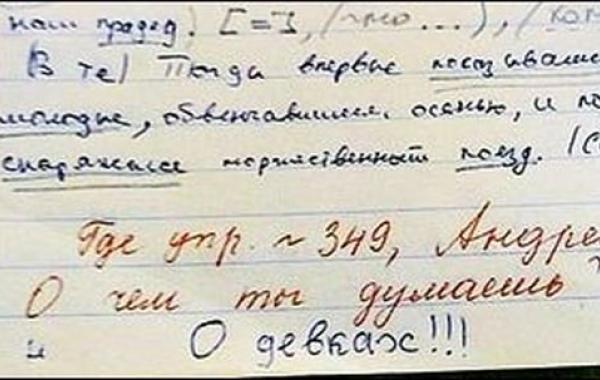 наш прадед. [=], (что ...), (ком
(В те) Тогда впервые показывались
молодые, обвенчавшиеся осенью, и по
снаряжался торжественный поезд. (С
Где упр. ~ 349, Андре
О чем ты думаешь?
и О девках!!!